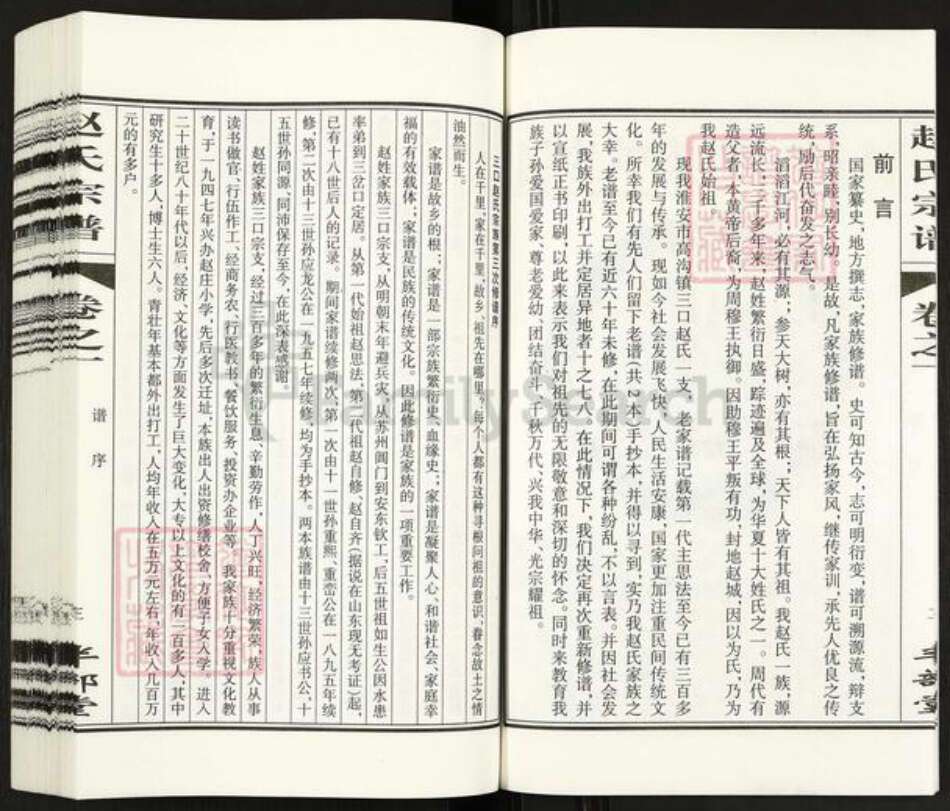 赵氏宗谱
卷之一
前言
国家纂史，地方撰志，家族修谱。史可知古今，志可明衍变，谱可溯源流，辩支
系，昭亲睦，别长幼。是故，凡家族修谱，旨在弘扬家风，继传家训，承先人优良之传
统，励后代奋发之志气。
滔滔江河，必有其源；参天大树，亦有其根；天下人皆有其祖。我赵氏一族，源
远流长，三千多年来，赵姓繁衍日盛，踪迹遍及全球，为华夏十大姓氏之一。周代有
造父者，本黄帝后裔，为周穆王执御。因助穆王平叛有功，封地赵城，因以为氏，乃为
我赵氏始祖
现我淮安市高沟镇三口赵氏一支，老家谱记载第一代主思法至今已有三百多
年的发展与传承。现如今社会发展飞快，人民生活安康，国家更加注重民间传统文
化。所幸我们有先人们留下老谱（共2本）手抄本，并得以寻到，实乃我赵氏家族之
大幸。老谱至今已有近六十年未修，在此期间可谓各种纷乱，不以言表。并因社会发
展，我族外出打工并定居异地者十之七八。在此情况下，我们决定再次重新修谱，并
以宣纸正书印刷，以此来表示我们对祖先的无限敬意和深切的怀念。同时来教育我
族子孙爱国爱家、尊老爱幼、团结奋斗、千秋万代、兴我中华、光宗耀祖。
三口赵氏宗族第三次修谱序
人在千里，家在千里，故乡、祖先在哪里。每个人都有这种寻根问祖的意识、眷念故土之情
油然而生。
家谱是故乡的根；家谱是一部宗族繁衍史、血缘史；家谱是凝聚人心、和谐社会、家庭幸
福的有效载体；家谱是民族的传统文化。因此修谱是家族的一项重要工作。
赵姓家族三口宗支，从明朝末年避兵灾，从苏州阊门到安东钦工，后五世祖如生公因水患
率弟到三岔口定居。从第一代始祖赵思法、第二代祖赵自修、赵自齐（据说在山东现无考证）起，
已有十八世后人的记录。期间家谱续修两次，第一次由十一世孙重熙、重峦公在一八九五年续
修，第二次由十三世孙应龙公在一九五七年续修，均为手抄本。两本族谱由十三世孙应书公、十
五世孙同源、同沛保存至今，在此深表感谢。
赵姓家族三口宗支，经过三百多年的繁衍生息、辛勤劳作，人丁兴旺，经济繁荣，族人从事
读书做官、行伍作工、经商务农、行医教书、餐饮服务、投资办企业等，我家族十分重视文化教
育，于一九四七年兴办赵庄小学，先后多次迁址，本族出人出资修缮校舍，方便子女入学。进入
二十世纪八十年代以后，经济、文化等方面发生了巨大变化，大专以上文化的有二百多人，其中
研究生十多人，博士生六人。青壮年基本都外出打工，人均年收入在五万元左右，年收入几百万
元的有多户。
赵氏宗谱
卷之一
谱序
三
半部堂
FamilySearch